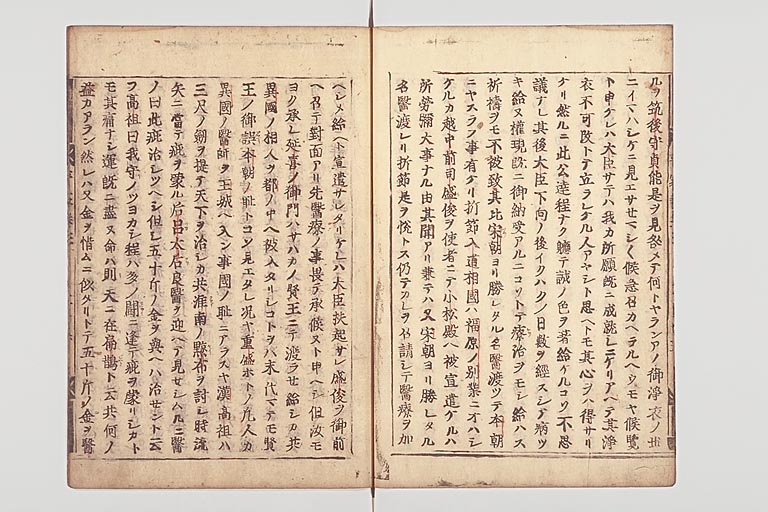 ルヲ筑後守貞能是ヲ見咎メテ何トヤランアノ御淨衣ノ世
ニイマハシケニ見エサセマシマシ候急召カヘラルヘウモヤ候覽
ト申ケレハ大臣サテハ我カ所願既ニ成就シニケリアヘテ其淨
衣不可改トテ立ランケル人アヤシト思ヘトモ其心ヲハ得サリ
ケリ然ルニ此公達程ナク軈テ誠ノ色ヲ著給ケルコソ不思
議ナレ其後大臣下向ノ後イクハクノ日數ヲ經スシテ病ツ
キ給又權現既ニ御納受アルニコソトテ療治ヲモシ給ハス
祈禱ヲモ不被致其比宋朝ヨリ勝レタル名醫渡ツテ本朝
ニヤスラフ事有ケリ折節入道相國ハ福原ノ別業ニオハシ
ケルカ越中前司盛俊ヲ使者ニテ小松殿ヘ被宣遣ケルハ
所勞彌大事ナル由其聞アリ兼テハ又宋朝ヨリ勝レタル
名醫渡レリ折節是ヲ悅トス仍テカレヲ召請シテ醫療ヲ加
ヘシメ給ヘト宣遣サレタリケレハ大臣扶起サレ盛俊ヲ御前
ヘ召テ對面アリ先醫療ノ事畏テ承候ヌト申ヘシ但汝モ
ヨク承レ延喜ノ御門ハサハカノ賢王ニテ渡ラセ給シカ共
異國ノ相人ヲ都ノ中ヘ被入タリシコトヲハ末代マテモ賢
王ノ御誤本朝ノ耻トコソ見エタレ況ヤ重盛ホトノ凡人カ
異國ノ醫師ヲ王城ヘ入ン事國ノ耻ニアラスヤ漢高祖ハ
三尺ノ劔ヲ提テ天下ヲ治シカ共淮南ノ黥布ヲ討シ時流
矢ニ當テ疵ヲ蒙ル后呂太后良醫ヲ迎ヘテ見セシムルニ醫
ノ曰此疵治シツヘシ但シ五十斤ノ金ヲ與ヘハ治セント云
フ高祖曰我守ノツヨカシ程ハ多ノ鬪ニ逢テ疵ヲ蒙リシカト
モ其痛ナシ運既ニ盡ヌ命ハ則天ニ在扁鵲ト云共何ノ
益カアラン然レハ又金ヲ惜ムニ似タリトテ五十斤ノ金ヲ醫